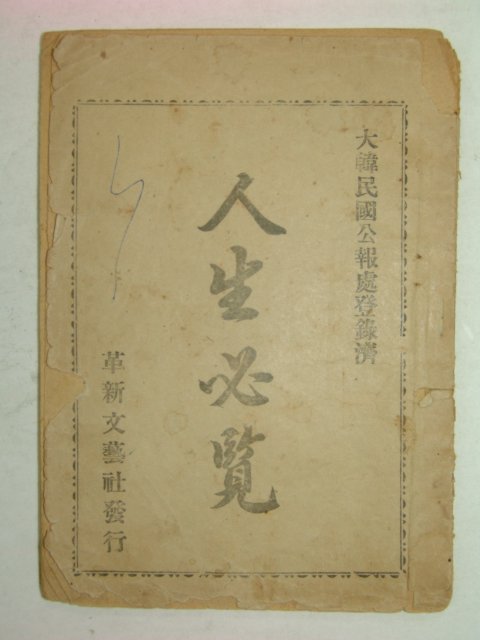 大韓民國公報處登錄濟
人生必覽
革新文藝社發行